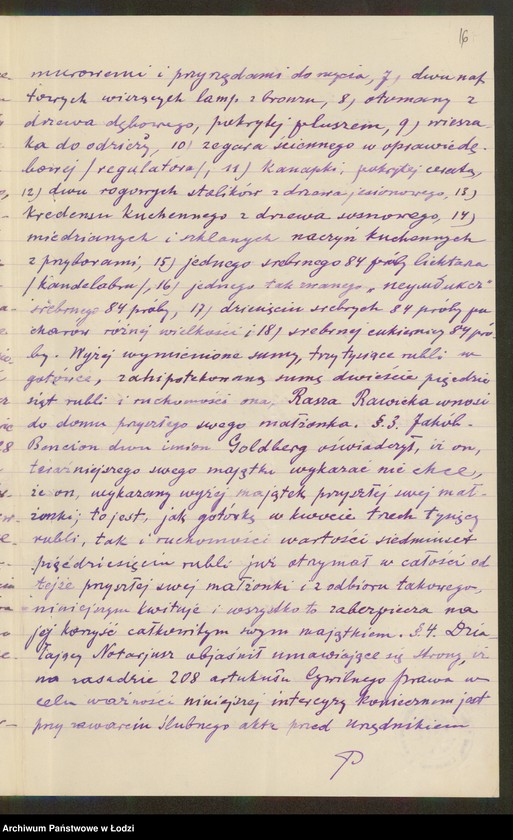 16
murowemi i przyrządami do mycia, 7) dwu naf
towych wiszących lamp z bronzu, 8) otomany z
drzewa dębowego, pokrytej pluszem, 9) wiesza-
ka do odzieży, 10) zegara ściennego w oprawie dę-
bowej /regulatora/, 11) kanapki, pokrytej ceratą,
12) dwu rogowych stolików z drzewa jesionowego, 13)
kredensu kuchennego z drzewa sosnowego, 14)
miedzianych i szklanych naczyń kuchennych
z przyborami, 15) jednego srebrnego 84 próby lichtarza
/kandelabru/, 16) jednego tak zwanego
srebrnego 84 próby, 17) dziesięciu srebrnych 84 próby pu
charów różnej wielkości i 18) srebrnej cukiernicy 84 pró-
by. Wyżej wymienione sumy, trzy tysiące rubli w
gotówce, zahipotekowaną sumę dwieście pięćdzie
siąt rubli i ruchomości ona, Rasza Rawicka wnosi
do domu przyszłego swego małżonka. §.3. Jakób-
Bencion dwu imion Goldberg oświadczył, iż on,
teraźniejszego swego majątku wykazać nie chce,
że on, wykazany wyżej majątek przyszłej swej mał-
żonki, to jest, jak gotówkę w kwocie trzech tysięcy
rubli, tak i ruchomości wartości siedmiuset
pięćdziesięciu rubli już otrzymał w całości od
tejże przyszłej swej małżonki i z odbioru takowego,
niniejszym kwituje i wszystko to zabezpiecza na
jej korzyść całkowitym swym majątkiem. §.4. Dzia-
łający Notarjusz objaśnił umawiające się strony, iż
na zasadzie 208 artykułu Cywilnego Prawa w
celu ważności niniejszej intercyzy koniecznem jest
przy zawarciu ślubnego aktu przed Urzędnikiem
Archiwum Państwowe w Łodzi